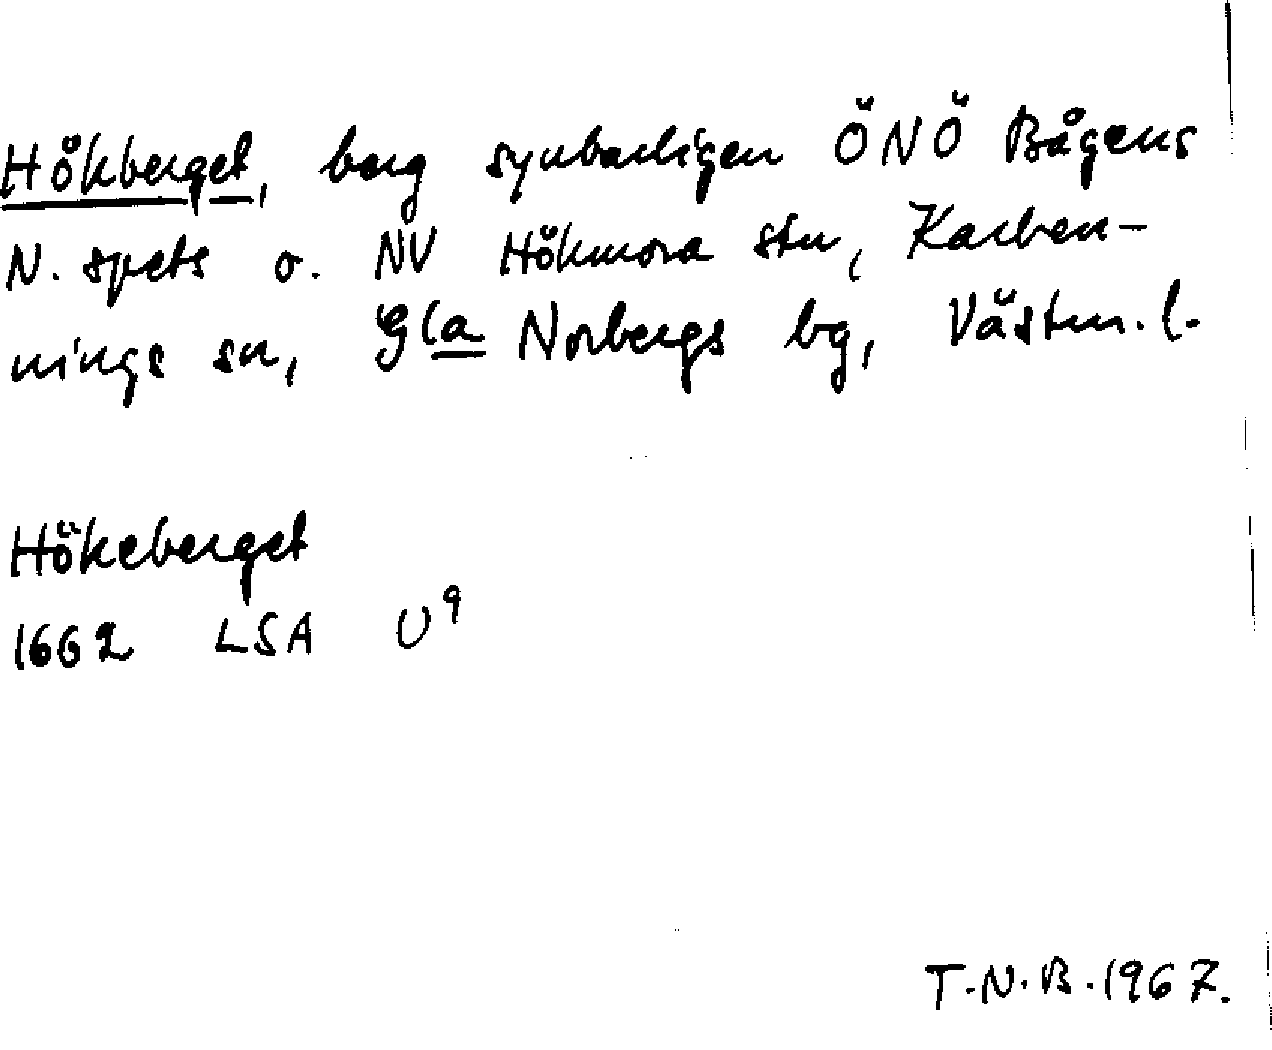 Hökberget, berg synbarligen ÖNÖ Bågens
N. spets o. NV Hökmora stn, Karben-
nings sn, Gla Norbergs bg, Västm. l.
Hökeberget
1662 LSA U9
T.N.B. 1967.